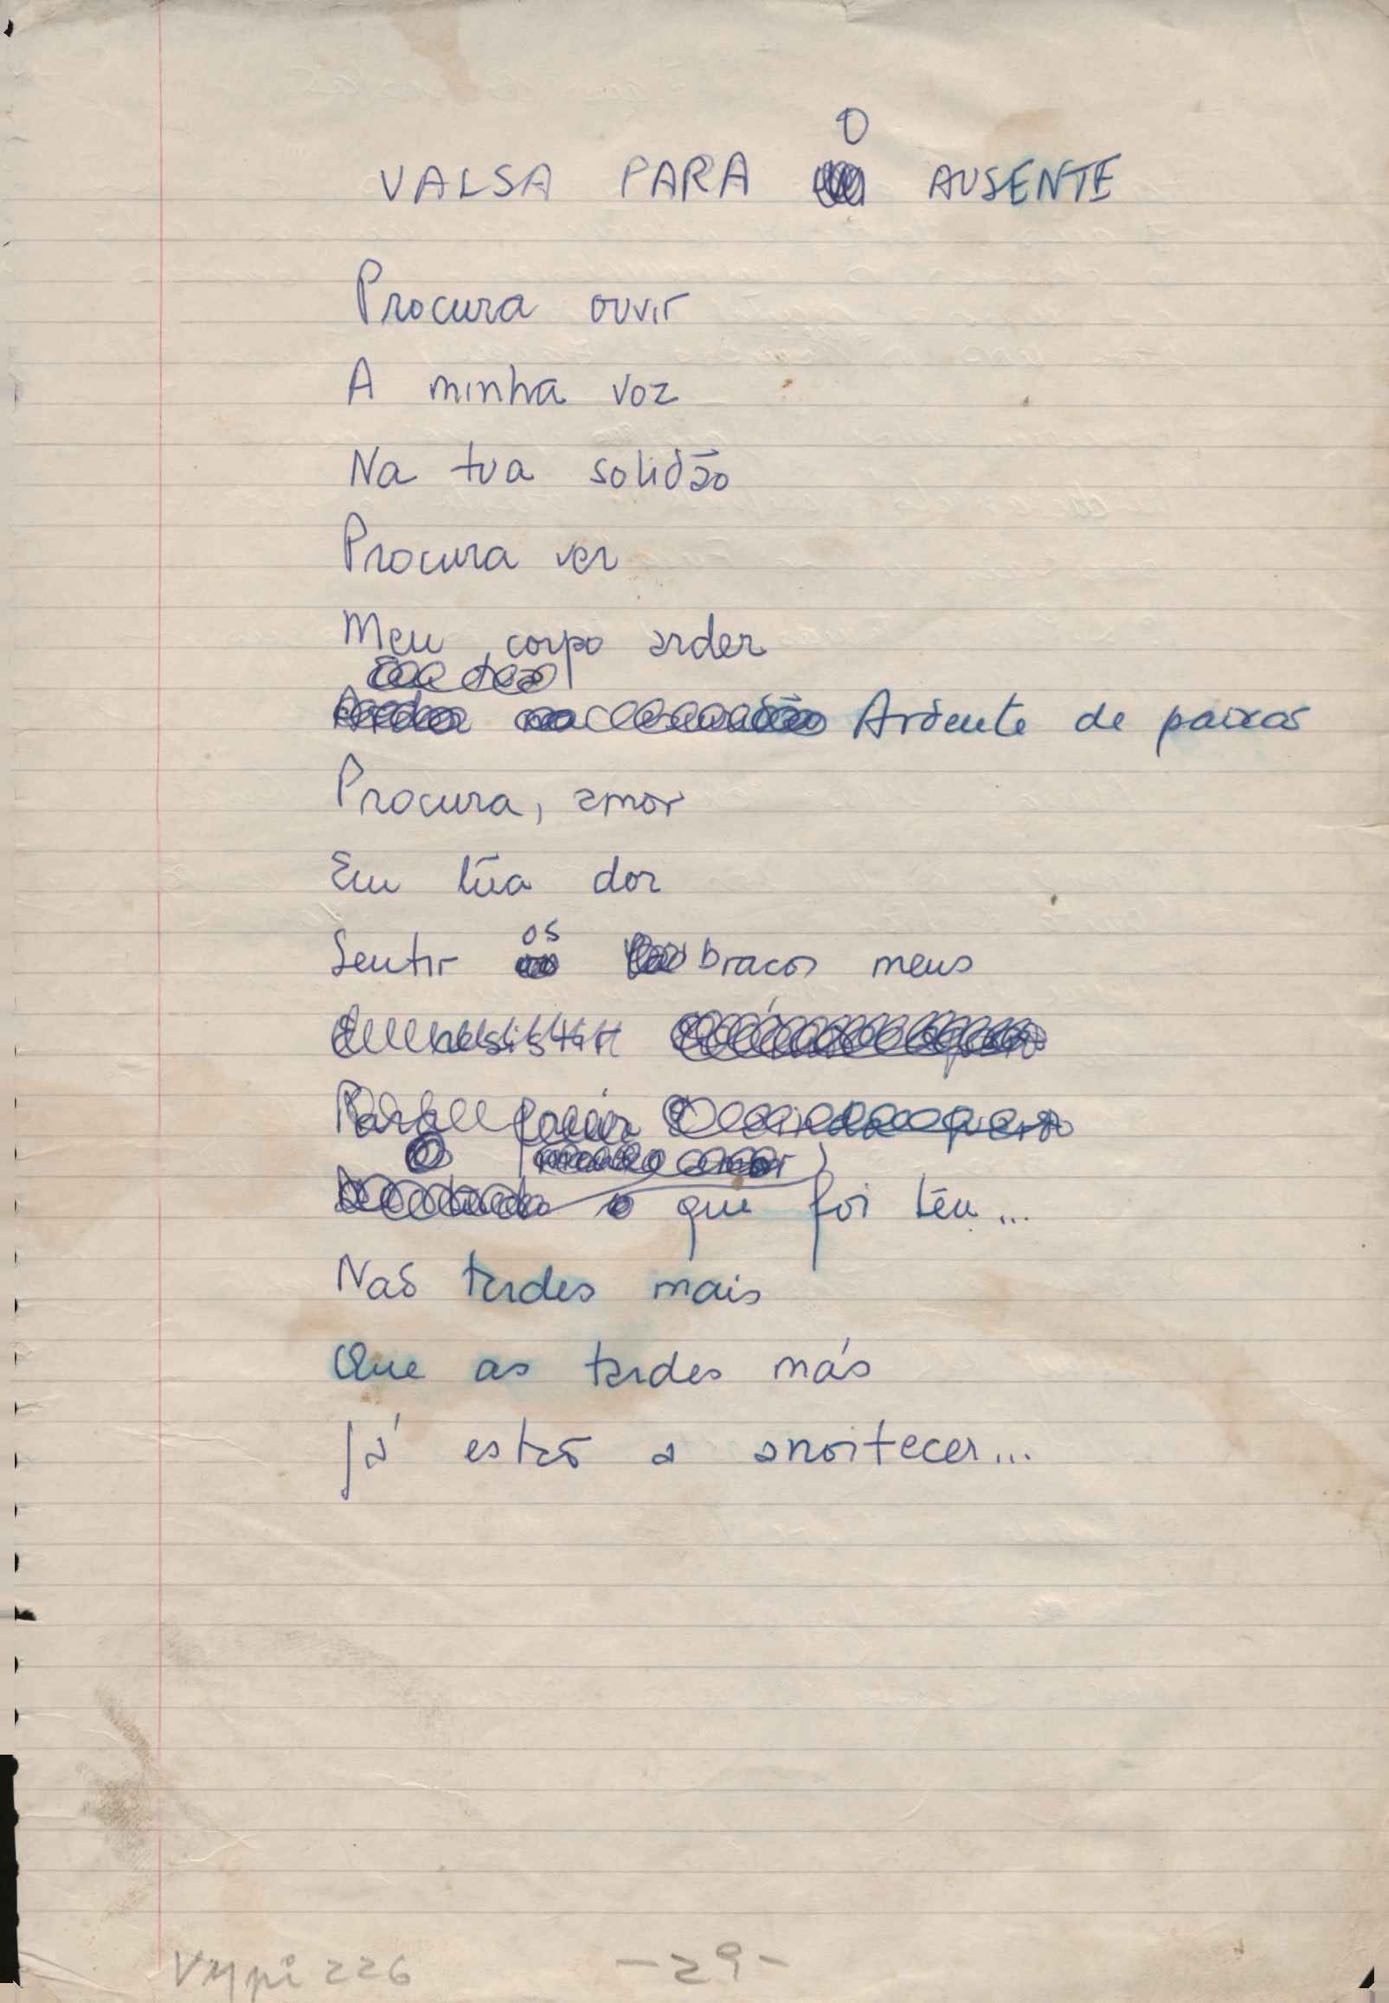 O
VALSA PARA AUSENTE
Procura ouvir
A minha voz
Na tua solidão
Procura ver
Meu corpo arder
Ardente de paixão
Procura, amor
Em tūa dor
os
Sentir braços meus
que foi tēu...
Nas tardes mais
Que as tardes más
Já estão a anoitecer...
Vmpi 226 -29-